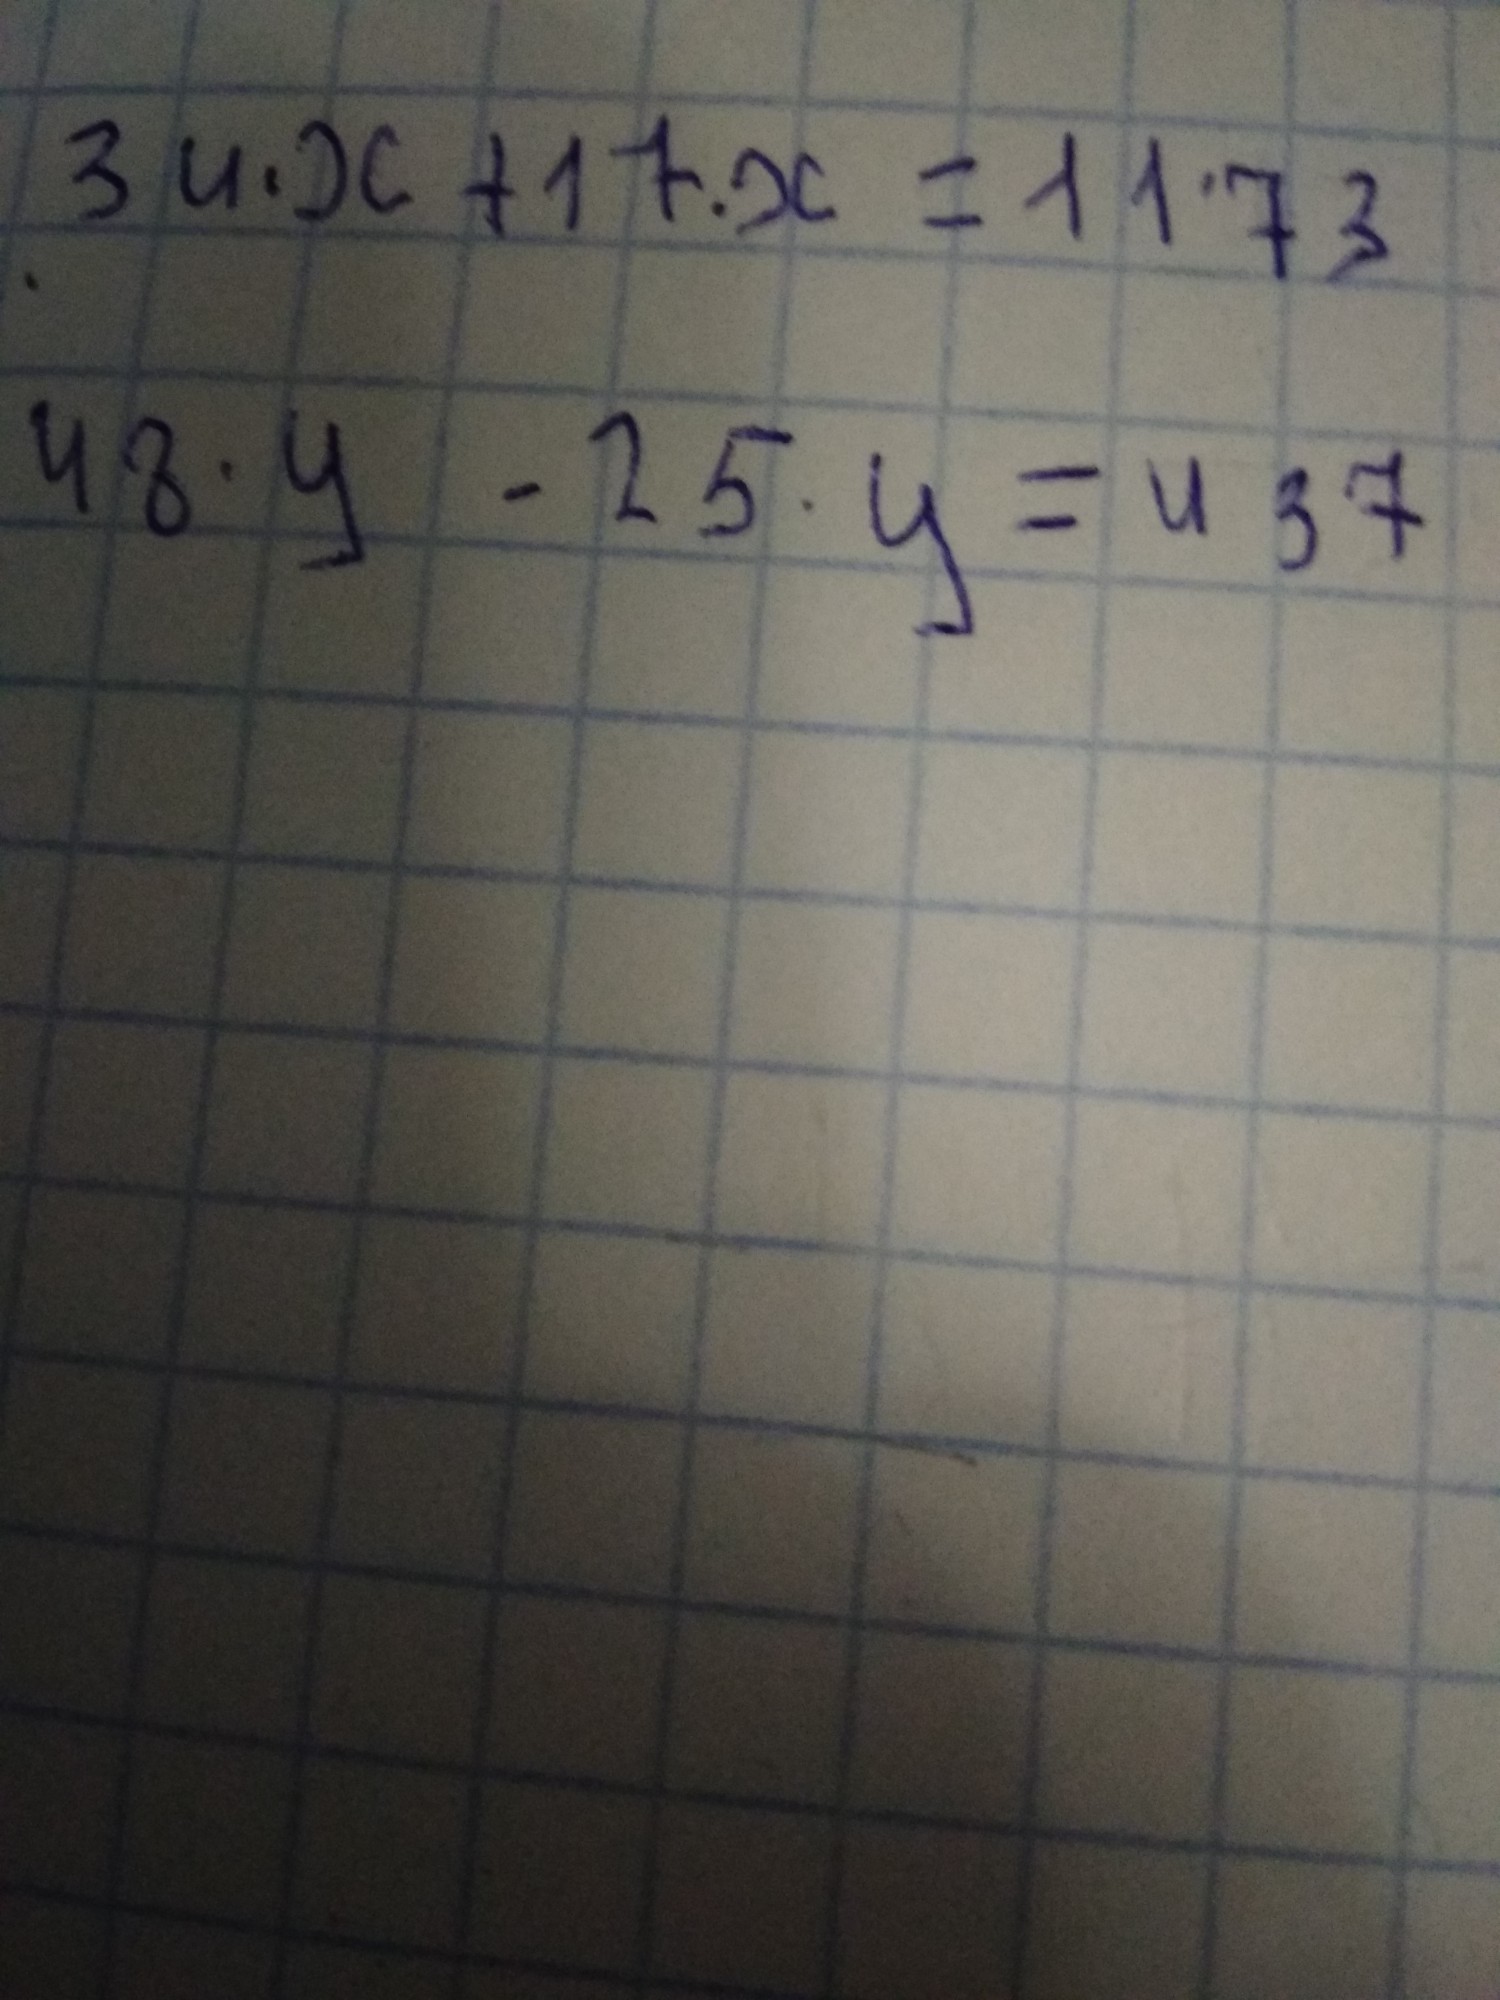 34·x+17·x=1173
48·y-25·y=437